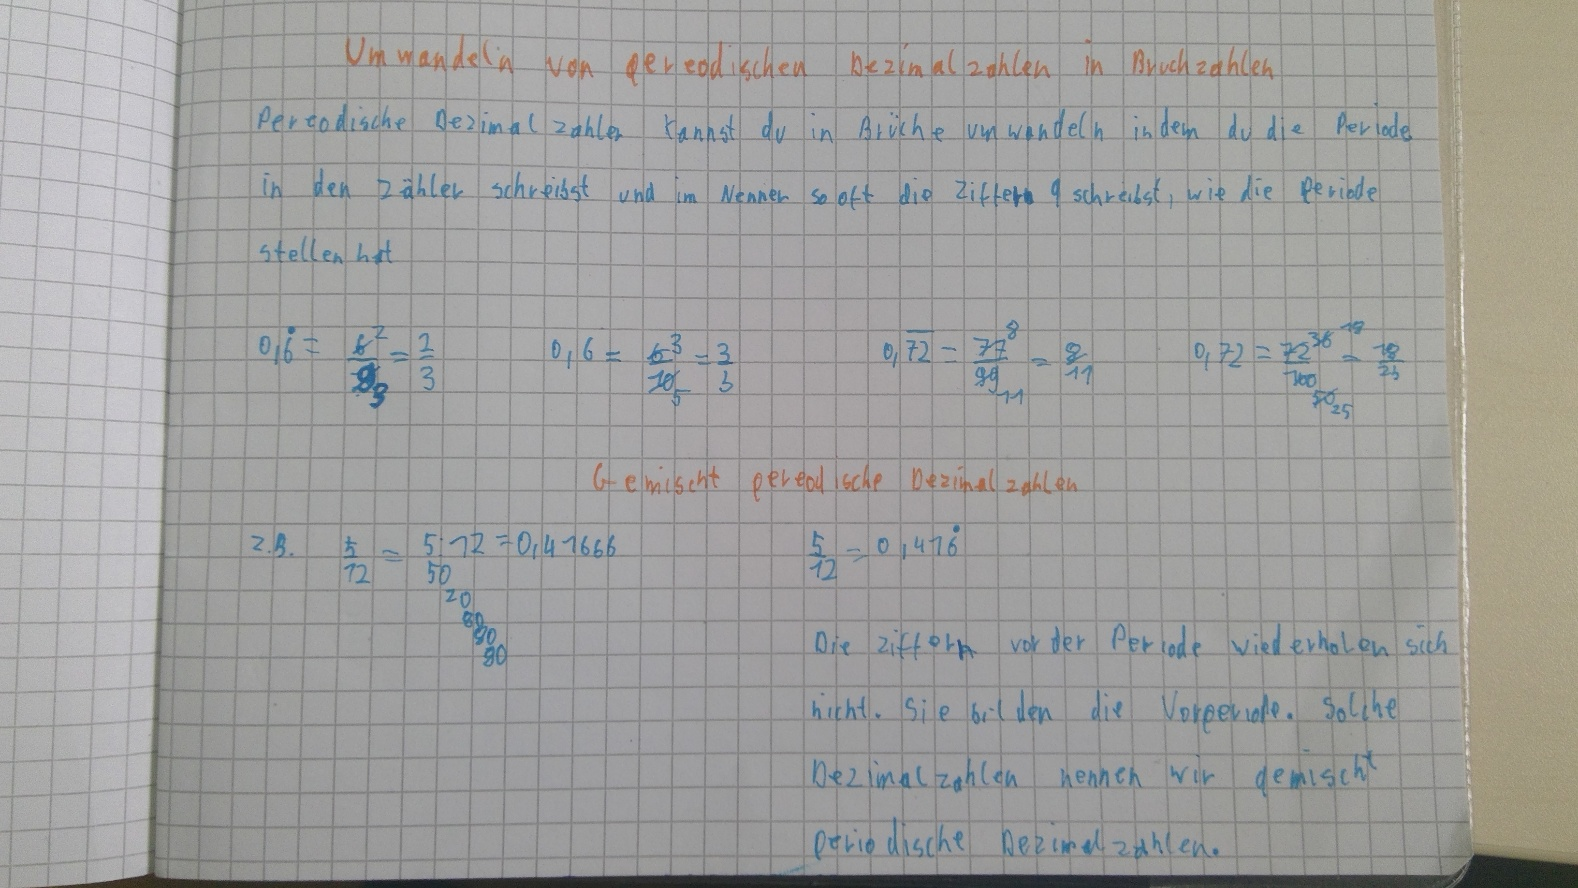 Umwandeln von pereodischen Dezimalzahlen in Bruchzahlen
Pereodische Dezimalzahlen kannst du in Brüche umwandeln indem du die Periode
in den Zähler schreibst und im Nenner so oft die Ziffern 9 schreibst, wie die Periode
stellen hat
0,6̇ = 6²/9₃ = 2/3   0,6 = 6³/10₅ = 3/5   0,7̅2̅ = 72⁸/99₁₁ = 8/11   0,72 = 72³⁶ ¹⁸/100 50 25 = 18/25
Gemischt pereodische Dezimalzahlen
z.B. 5/12 = 5:12 = 0,41666   5/12 = 0,416̇
50
20
80
80
80
Die Ziffern vor der Periode wiederholen sich
nicht. Sie bilden die Vorperiode. Solche
Dezimalzahlen nennen wir gemischt
periodische Dezimalzahlen.